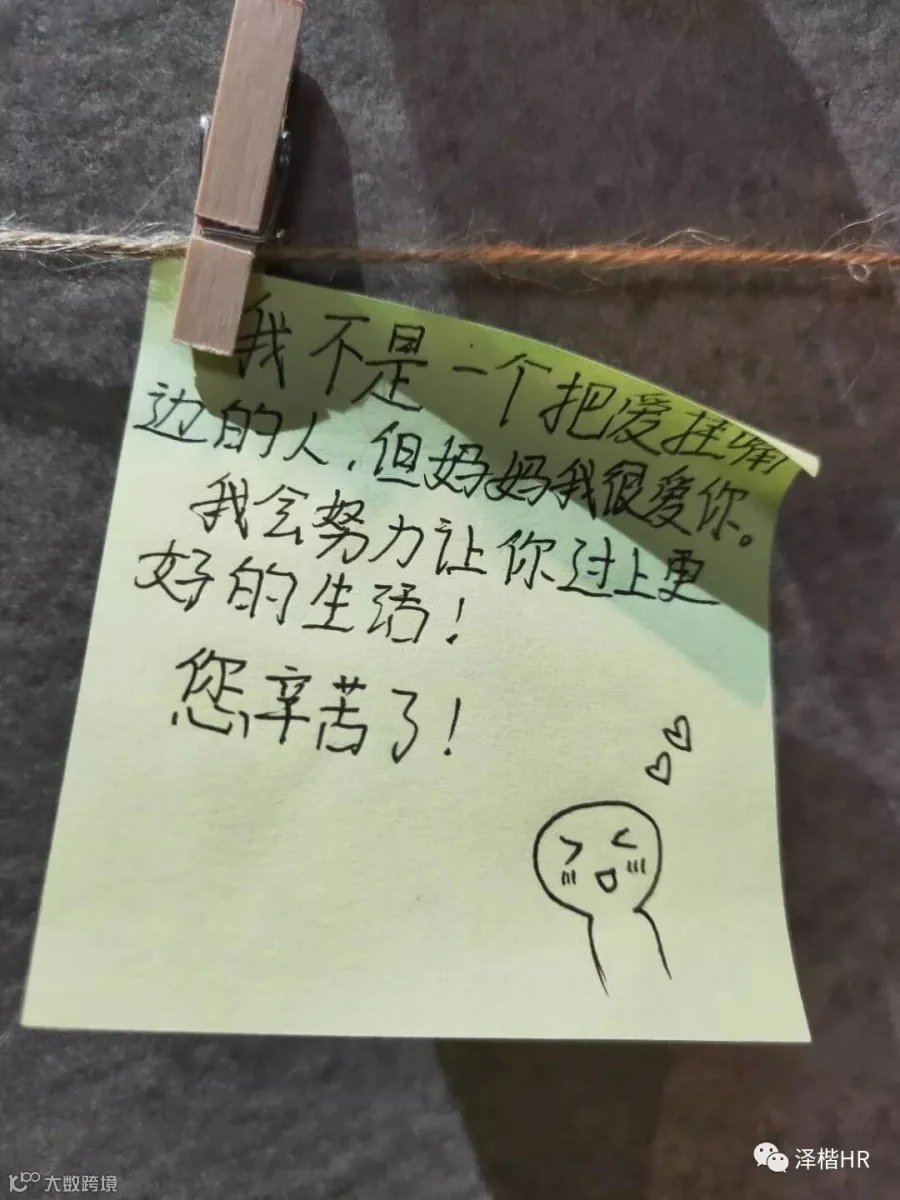 我不是一个把爱挂嘴
边的人，但妈妈我很爱你。
我会努力让你过上更
好的生活！
您辛苦了！
泽楷HR
大数跨境